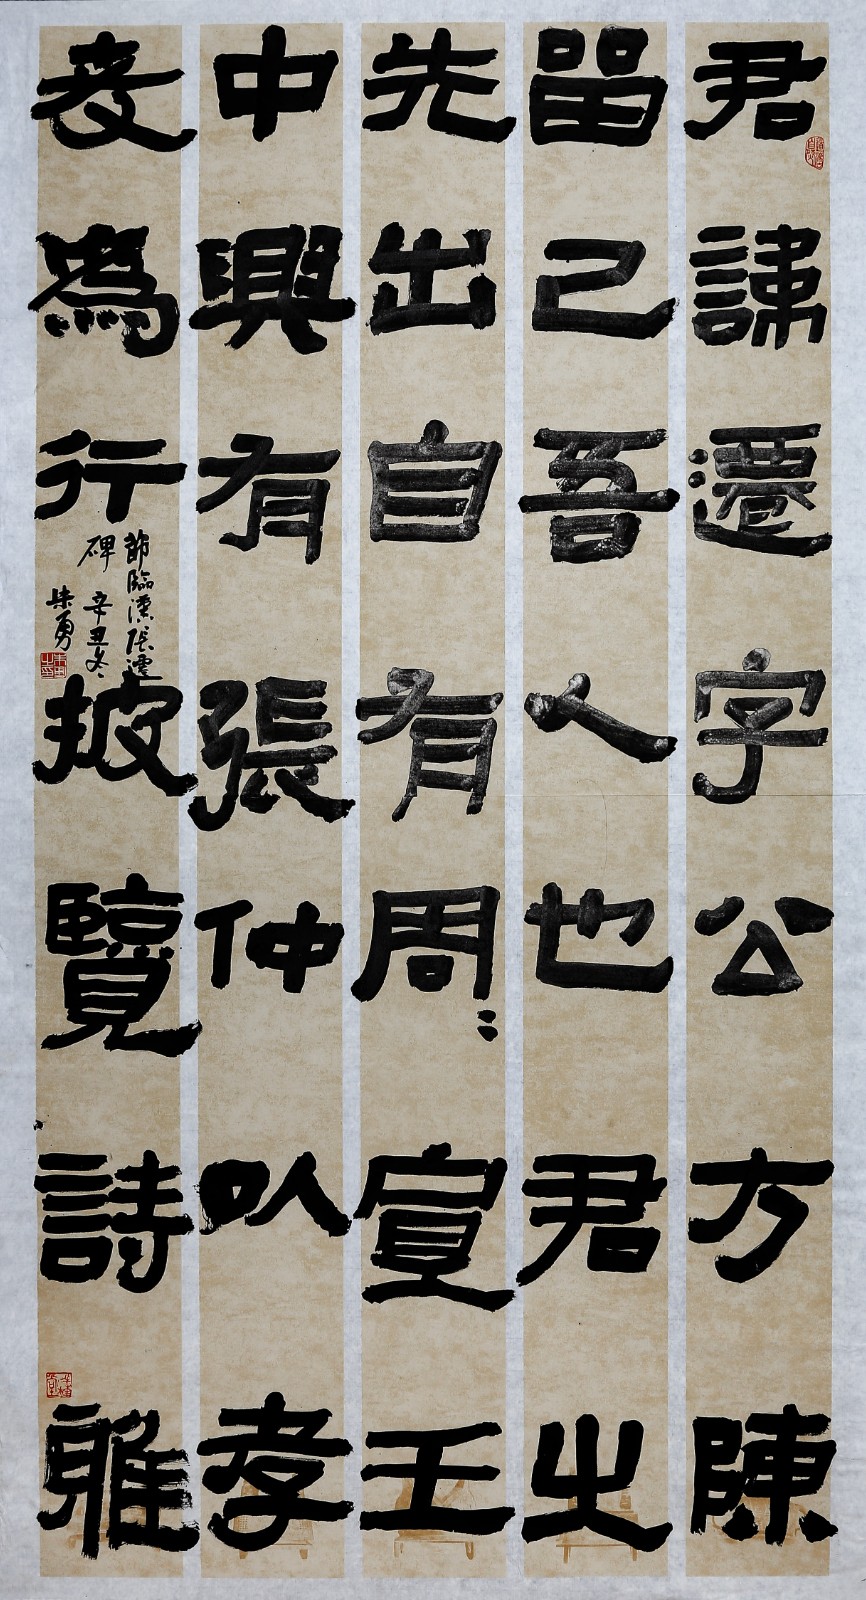 君諱遷字公方陳
留己吾人也君之
先出自有周：宣王
中興有張仲以孝
友為行披覽詩雅
節臨漢張遷
碑 辛丑冬
柴勇